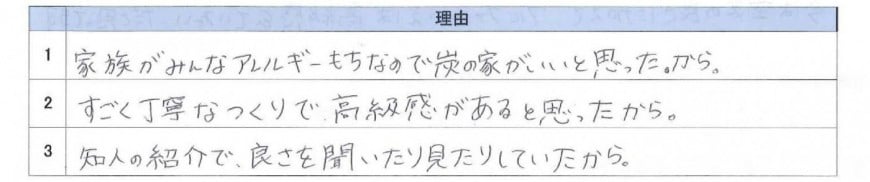 理由
1 家族がみんなアレルギーもちなので炭の家がいいと思った。から。
2 すごく丁寧なつくりで、高級感があると思ったから。
3 知人の紹介で、良さを聞いたり見たりしていたから。